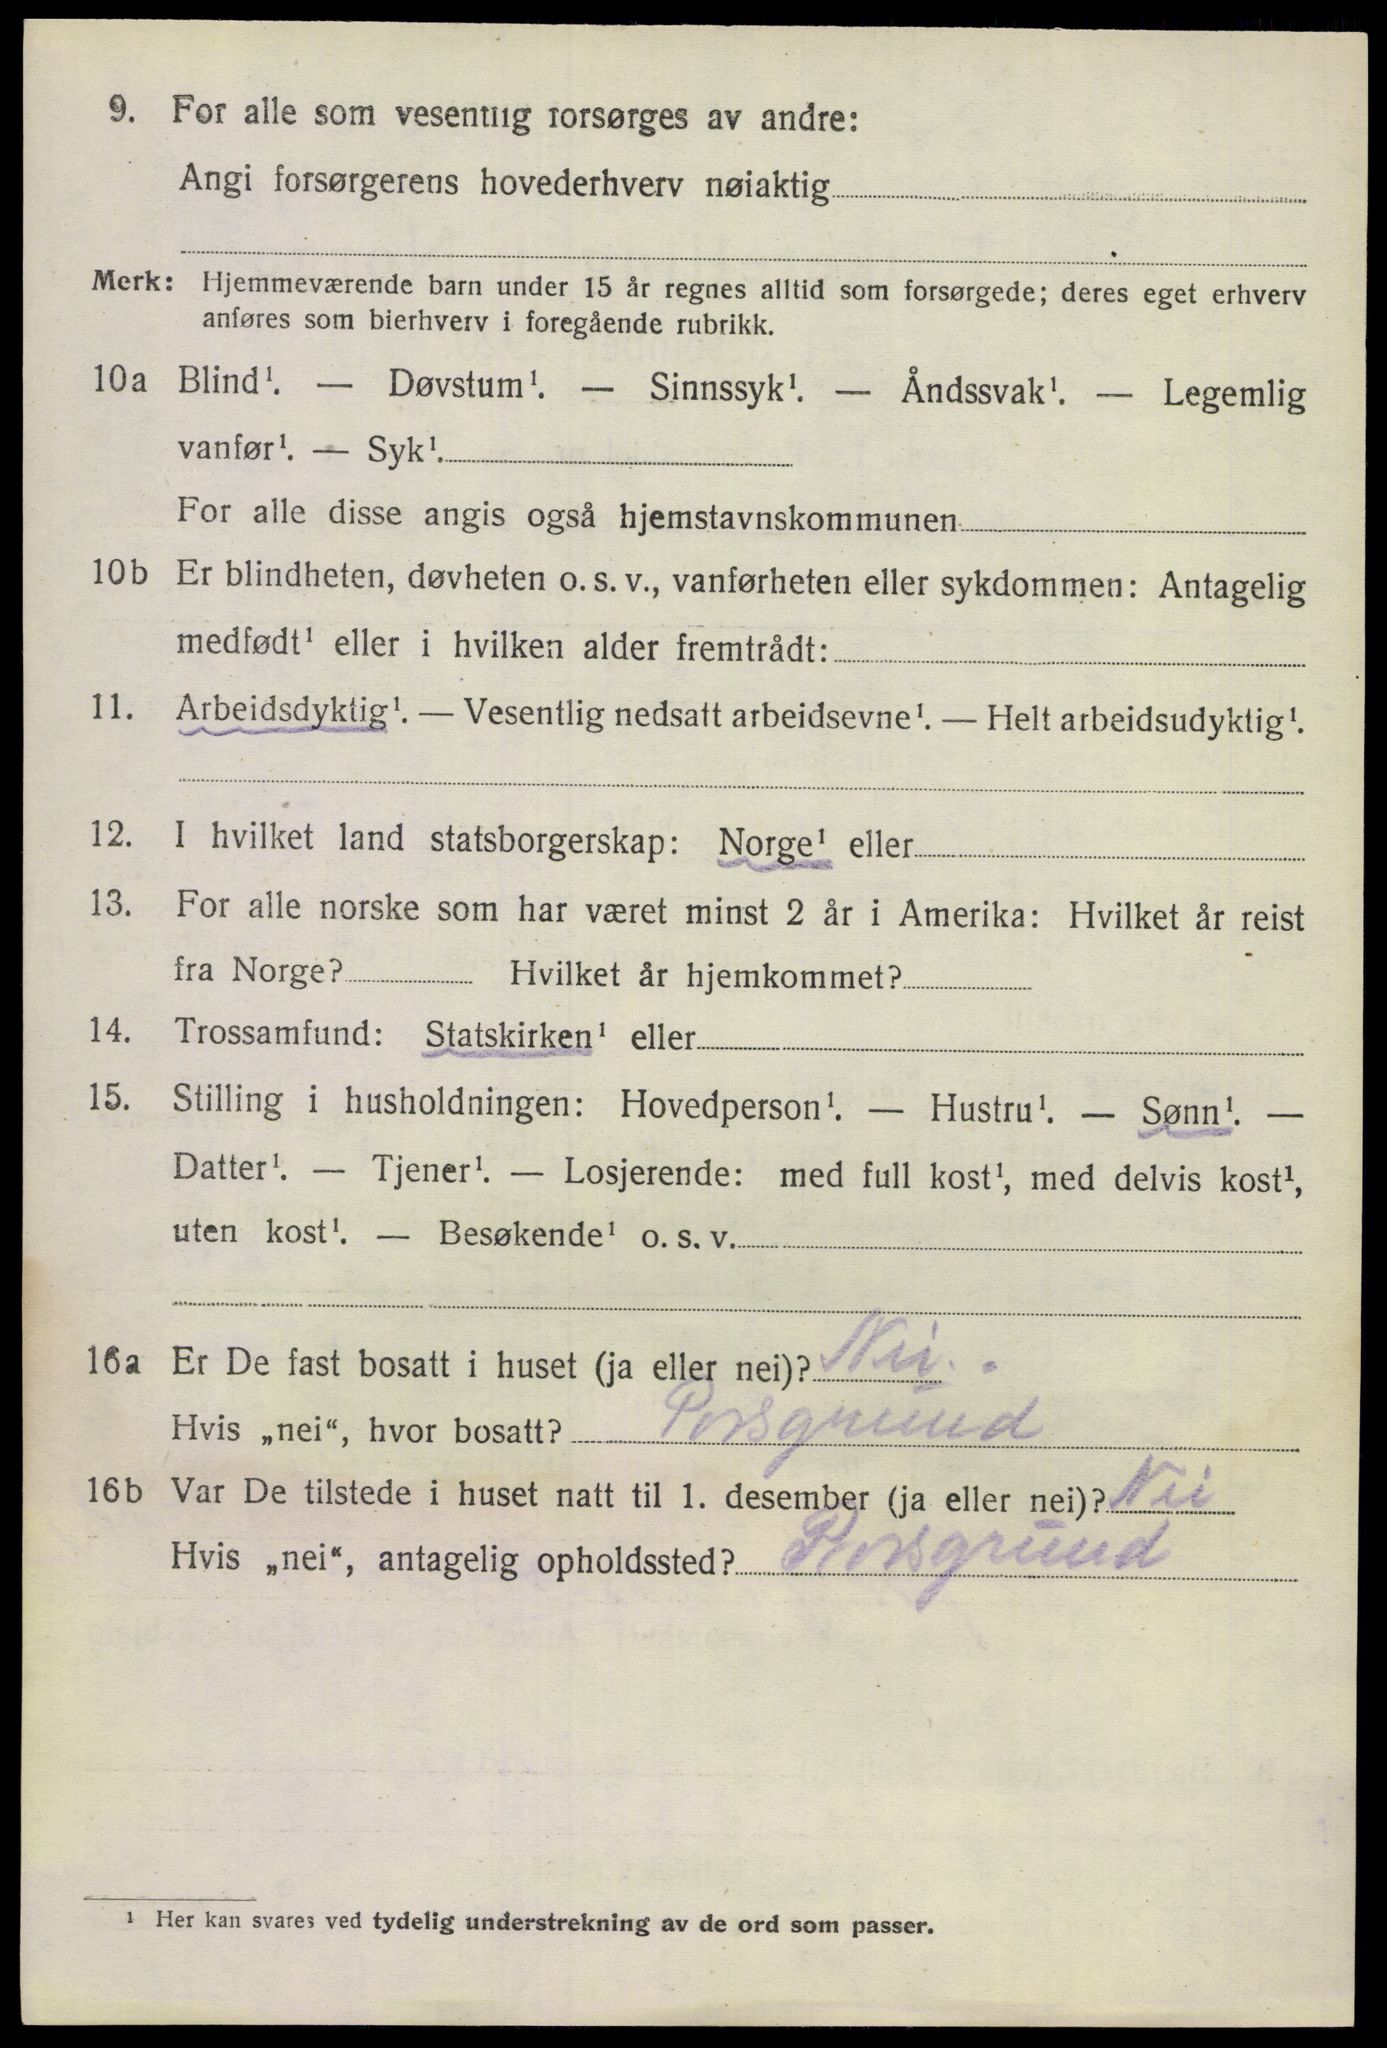 9. For alle som vesentlig forsørges av andre:
Angi forsørgerens hovederhverv nøiaktig
Merk: Hjemmeværende barn under 15 år regnes alltid som forsørgede; deres eget erhverv
anføres som bierhverv i foregående rubrikk.
10a Blind¹. — Døvstum¹. — Sinnssyk¹. — Åndssvak¹. — Legemlig
vanfør¹. — Syk¹.
For alle disse angis også hjemstavnskommunen
10b Er blindheten, døvheten o. s. v., vanførheten eller sykdommen: Antagelig
medfødt¹ eller i hvilken alder fremtrådt:
11. Arbeidsdyktig¹. — Vesentlig nedsatt arbeidsevne¹. — Helt arbeidsudyktig¹.
12. I hvilket land statsborgerskap: Norge¹ eller
13. For alle norske som har været minst 2 år i Amerika: Hvilket år reist
fra Norge? Hvilket år hjemkommet?
14. Trossamfund: Statskirken¹ eller
15. Stilling i husholdningen: Hovedperson¹. — Hustru¹. — Sønn¹. —
Datter¹. — Tjener¹. — Losjerende: med full kost¹, med delvis kost¹,
uten kost¹. — Besøkende¹ o. s. v.
16a Er De fast bosatt i huset (ja eller nei)? Nei.
Hvis „nei“, hvor bosatt? Porsgrund
16b Var De tilstede i huset natt til 1. desember (ja eller nei)? Nei
Hvis „nei“, antagelig opholdssted? Porsgrund
¹ Her kan svares ved tydelig understrekning av de ord som passer.